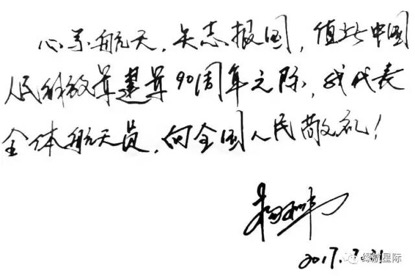 心系航天,矢志报国,值此中国
人民解放军建军90周年之际,我代表
全体航天员,向全国人民敬礼!
杨利伟
2017.7.31